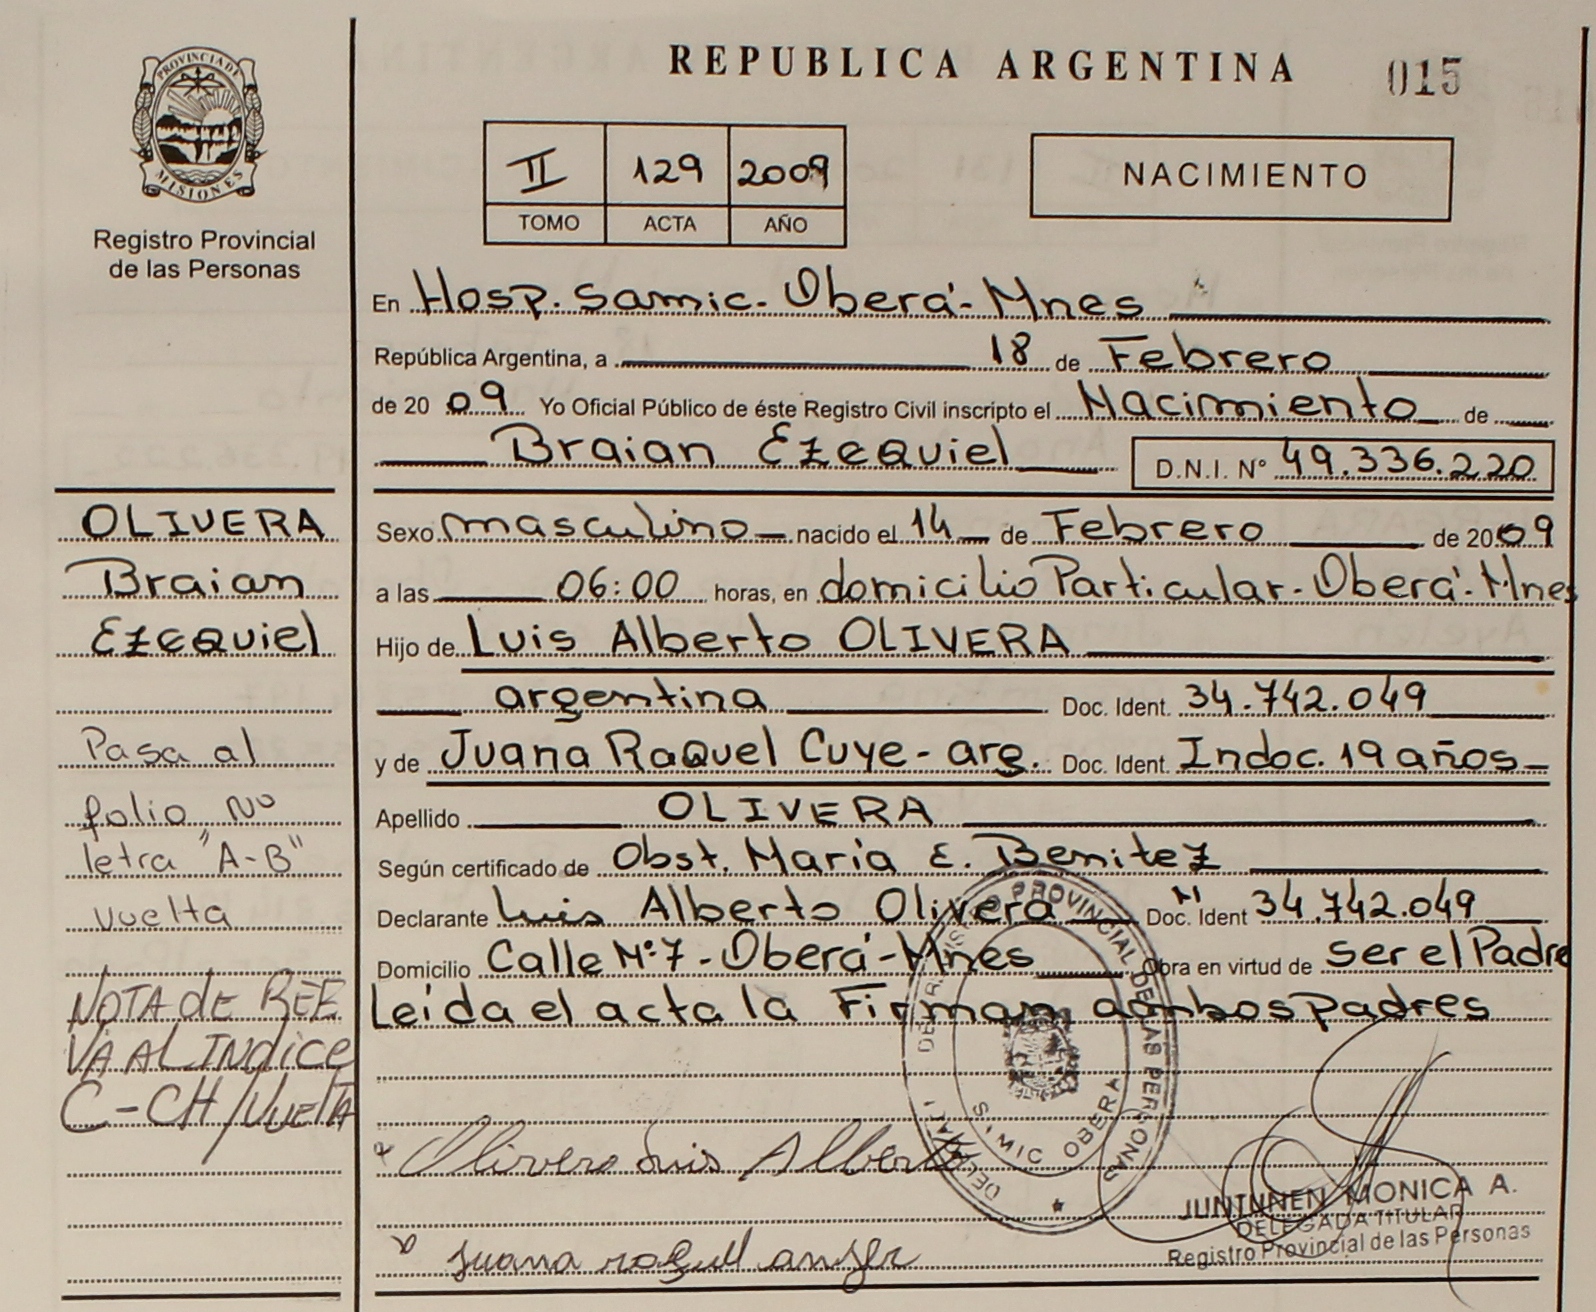 REPUBLICA ARGENTINA
015
PROVINCIA DE MISIONES
Registro Provincial
de las Personas
II 129 2009
TOMO ACTA AÑO
NACIMIENTO
En Hosp. Samic. Oberá - Mnes
República Argentina, a 18 de Febrero
de 20 09 Yo Oficial Público de éste Registro Civil inscripto el Nacimiento de
Braian Ezequiel D.N.I. Nº 49.336.220
Sexo masculino nacido el 14 de Febrero de 20 09
a las 06:00 horas, en domicilio Particular - Oberá - Mnes
Hijo de Luis Alberto OLIVERA
argentina Doc. Ident. 34.742.049
y de Juana Raquel Cuye - arg. Doc. Ident. Indoc. 19 años
Apellido OLIVERA
Según certificado de Obst. María E. Benitez
Declarante Luis Alberto Olivera Doc. Ident 34.742.049
Domicilio Calle Nº 7 - Oberá - Mnes Obra en virtud de ser el Padre
Leída el acta la Firman ambos padres
OLIVERA
Braian
Ezequiel
Pasa al
folio Nº
letra "A-B"
vuelta
NOTA de REE
VA AL INdice
C-CH/VueltA
Olivera Luis Alberto
Juana
PROVINCIAL DE LAS PERSONAS
SAMIC OBERA
JUNTUNEN MONICA A.
DELEGADA TITULAR
Registro Provincial de las Personas